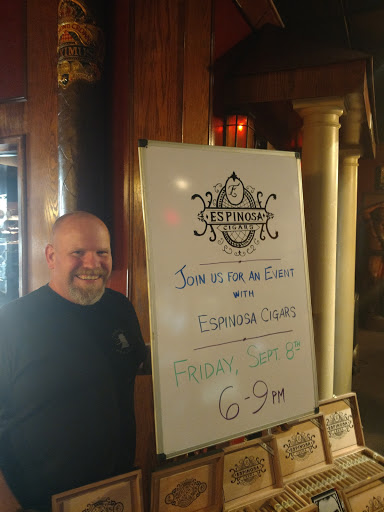 E
ESPINOSA
CIGARS
JOIN US FOR AN EVENT
WITH
ESPINOSA CIGARS
FRIDAY, SEPT. 8TH
6-9 PM
ESPINOSA
ESPINOSA
ESPINOSA